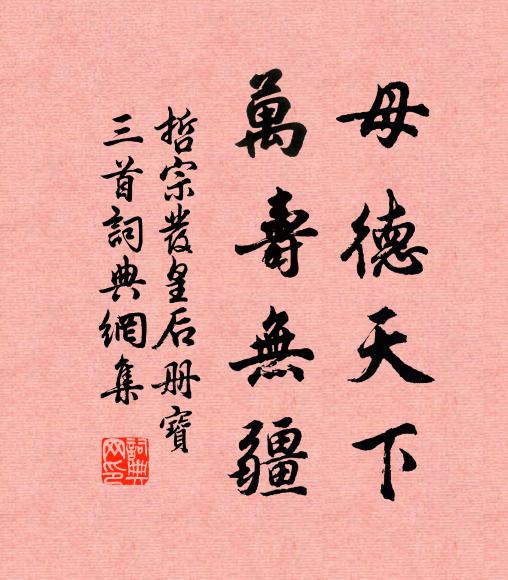 母德天下
萬壽無疆
哲宗發皇后册寶
三首詞典網集
詞典網印